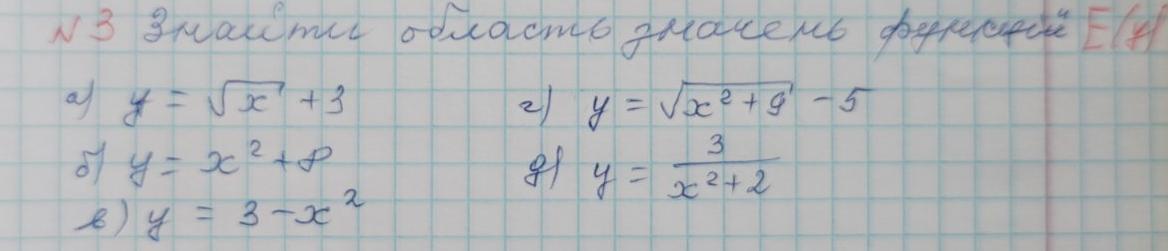 N3 Знайти область значень функцій E(y)
а) y = √x + 3
б) y = x² + 8
в) y = 3 - x²
г) y = √x² + 9 - 5
д) y = 3/x² + 2